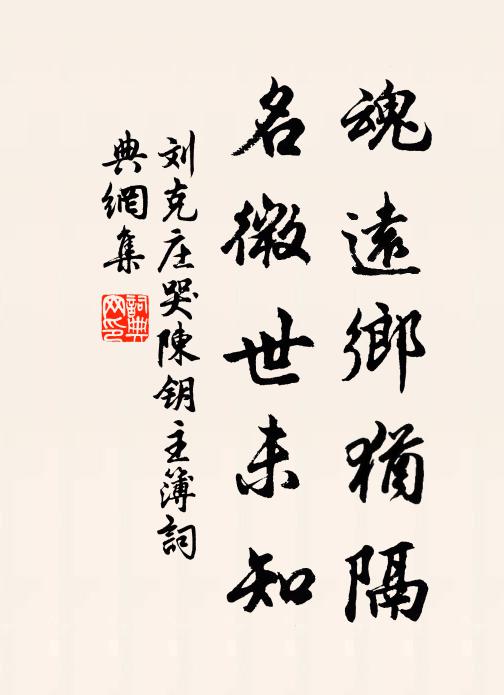 魂遠鄉猶隔
名微世未知
刘克庄哭陳钥主簿詞
典網集
詞典
网印